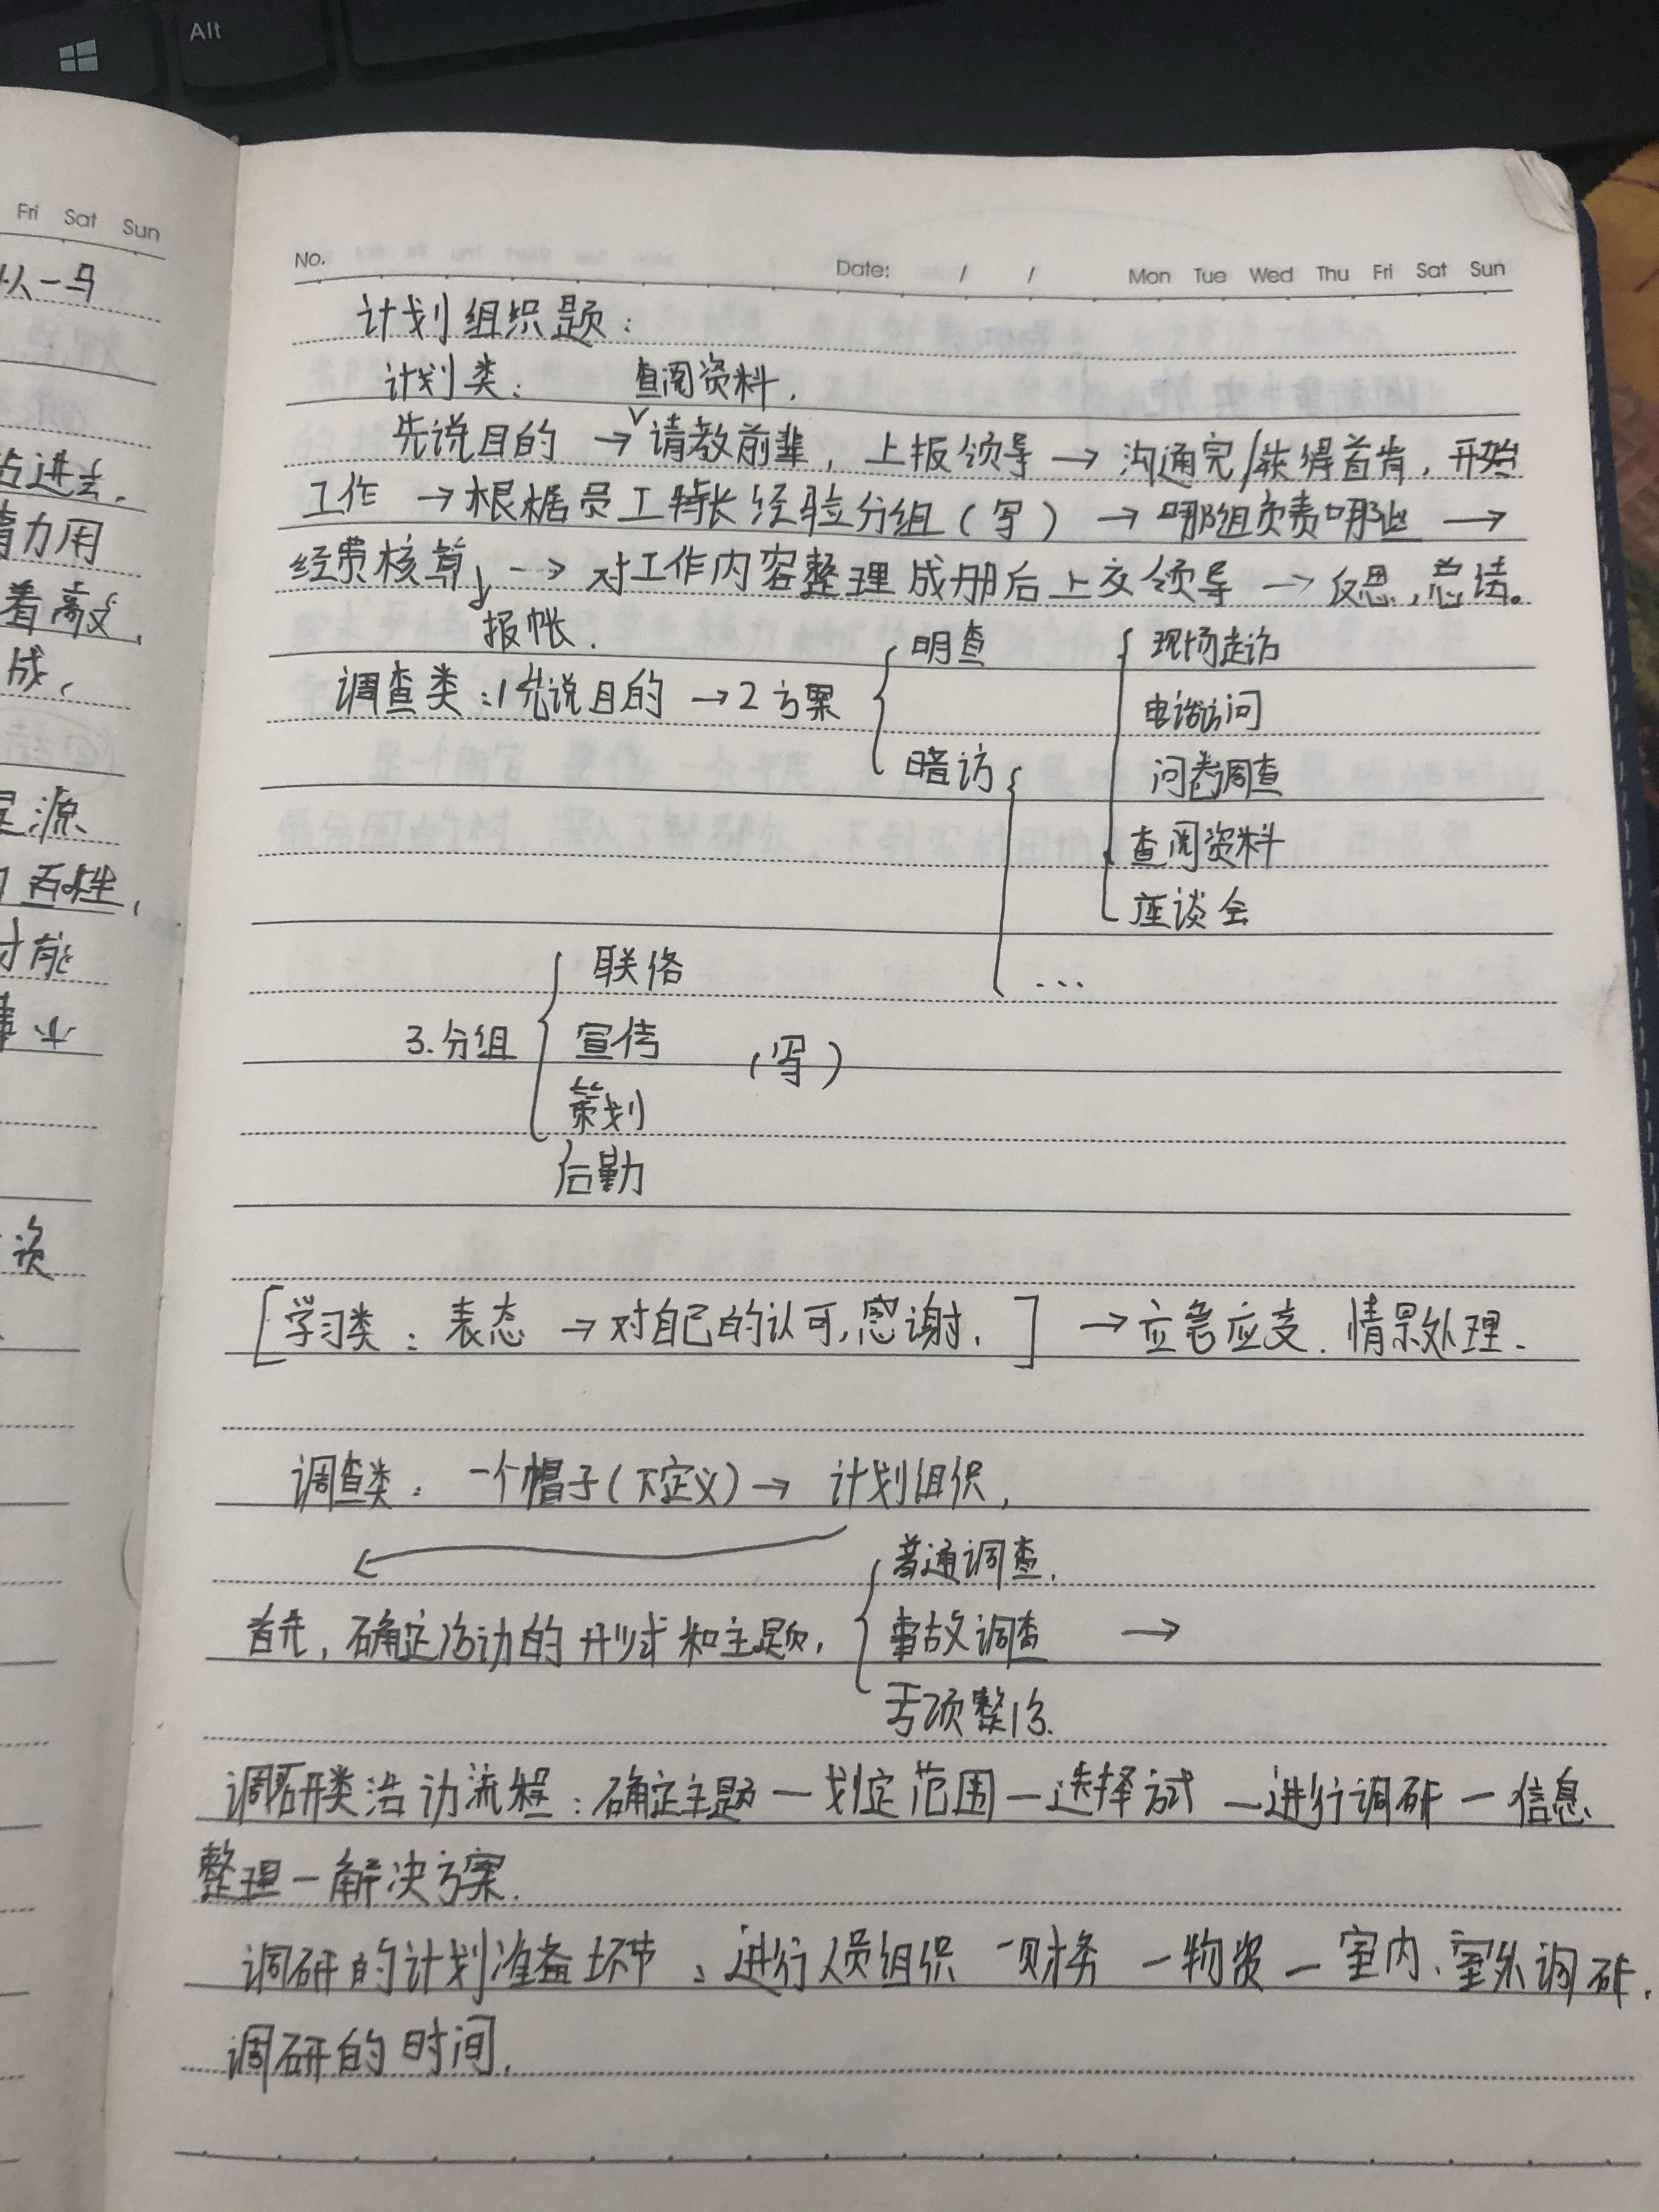 Alt
Fri Sat Sun
从一马
进去.
力用
着高效,
成,
源
百姓,
才能
事业
资
No. Date: / / Mon Tue Wed Thu Fri Sat Sun
计划组织题:
计划类: 查阅资料.
先说目的 → 请教前辈, 上报领导 → 沟通完/获得首肯, 开始
工作 → 根据员工特长经验分组(写) → 哪组负责哪些 →
经费核算, → 对工作内容整理成册后上交领导 → 反思,总结。
报帐.
调查类:1先说目的 → 2方案
明查
暗访
现场走访
电话访问
问卷调查
查阅资料
座谈会
...
3.分组
联络
宣传
策划
后勤
(写)
[学习类: 表态 → 对自己的认可,感谢.] → 应急应变. 情景处理.
调查类: 一个帽子(下定义) → 计划组织,
首先, 确定活动的形式和主题,
普通调查.
事故调查 →
专项整治.
调研类活动流程:确定主题—划定范围—选择方式—进行调研—信息
整理—解决方案.
调研的计划准备环节:进行人员组织—财务—物资—室内、室外调研.
调研的时间.